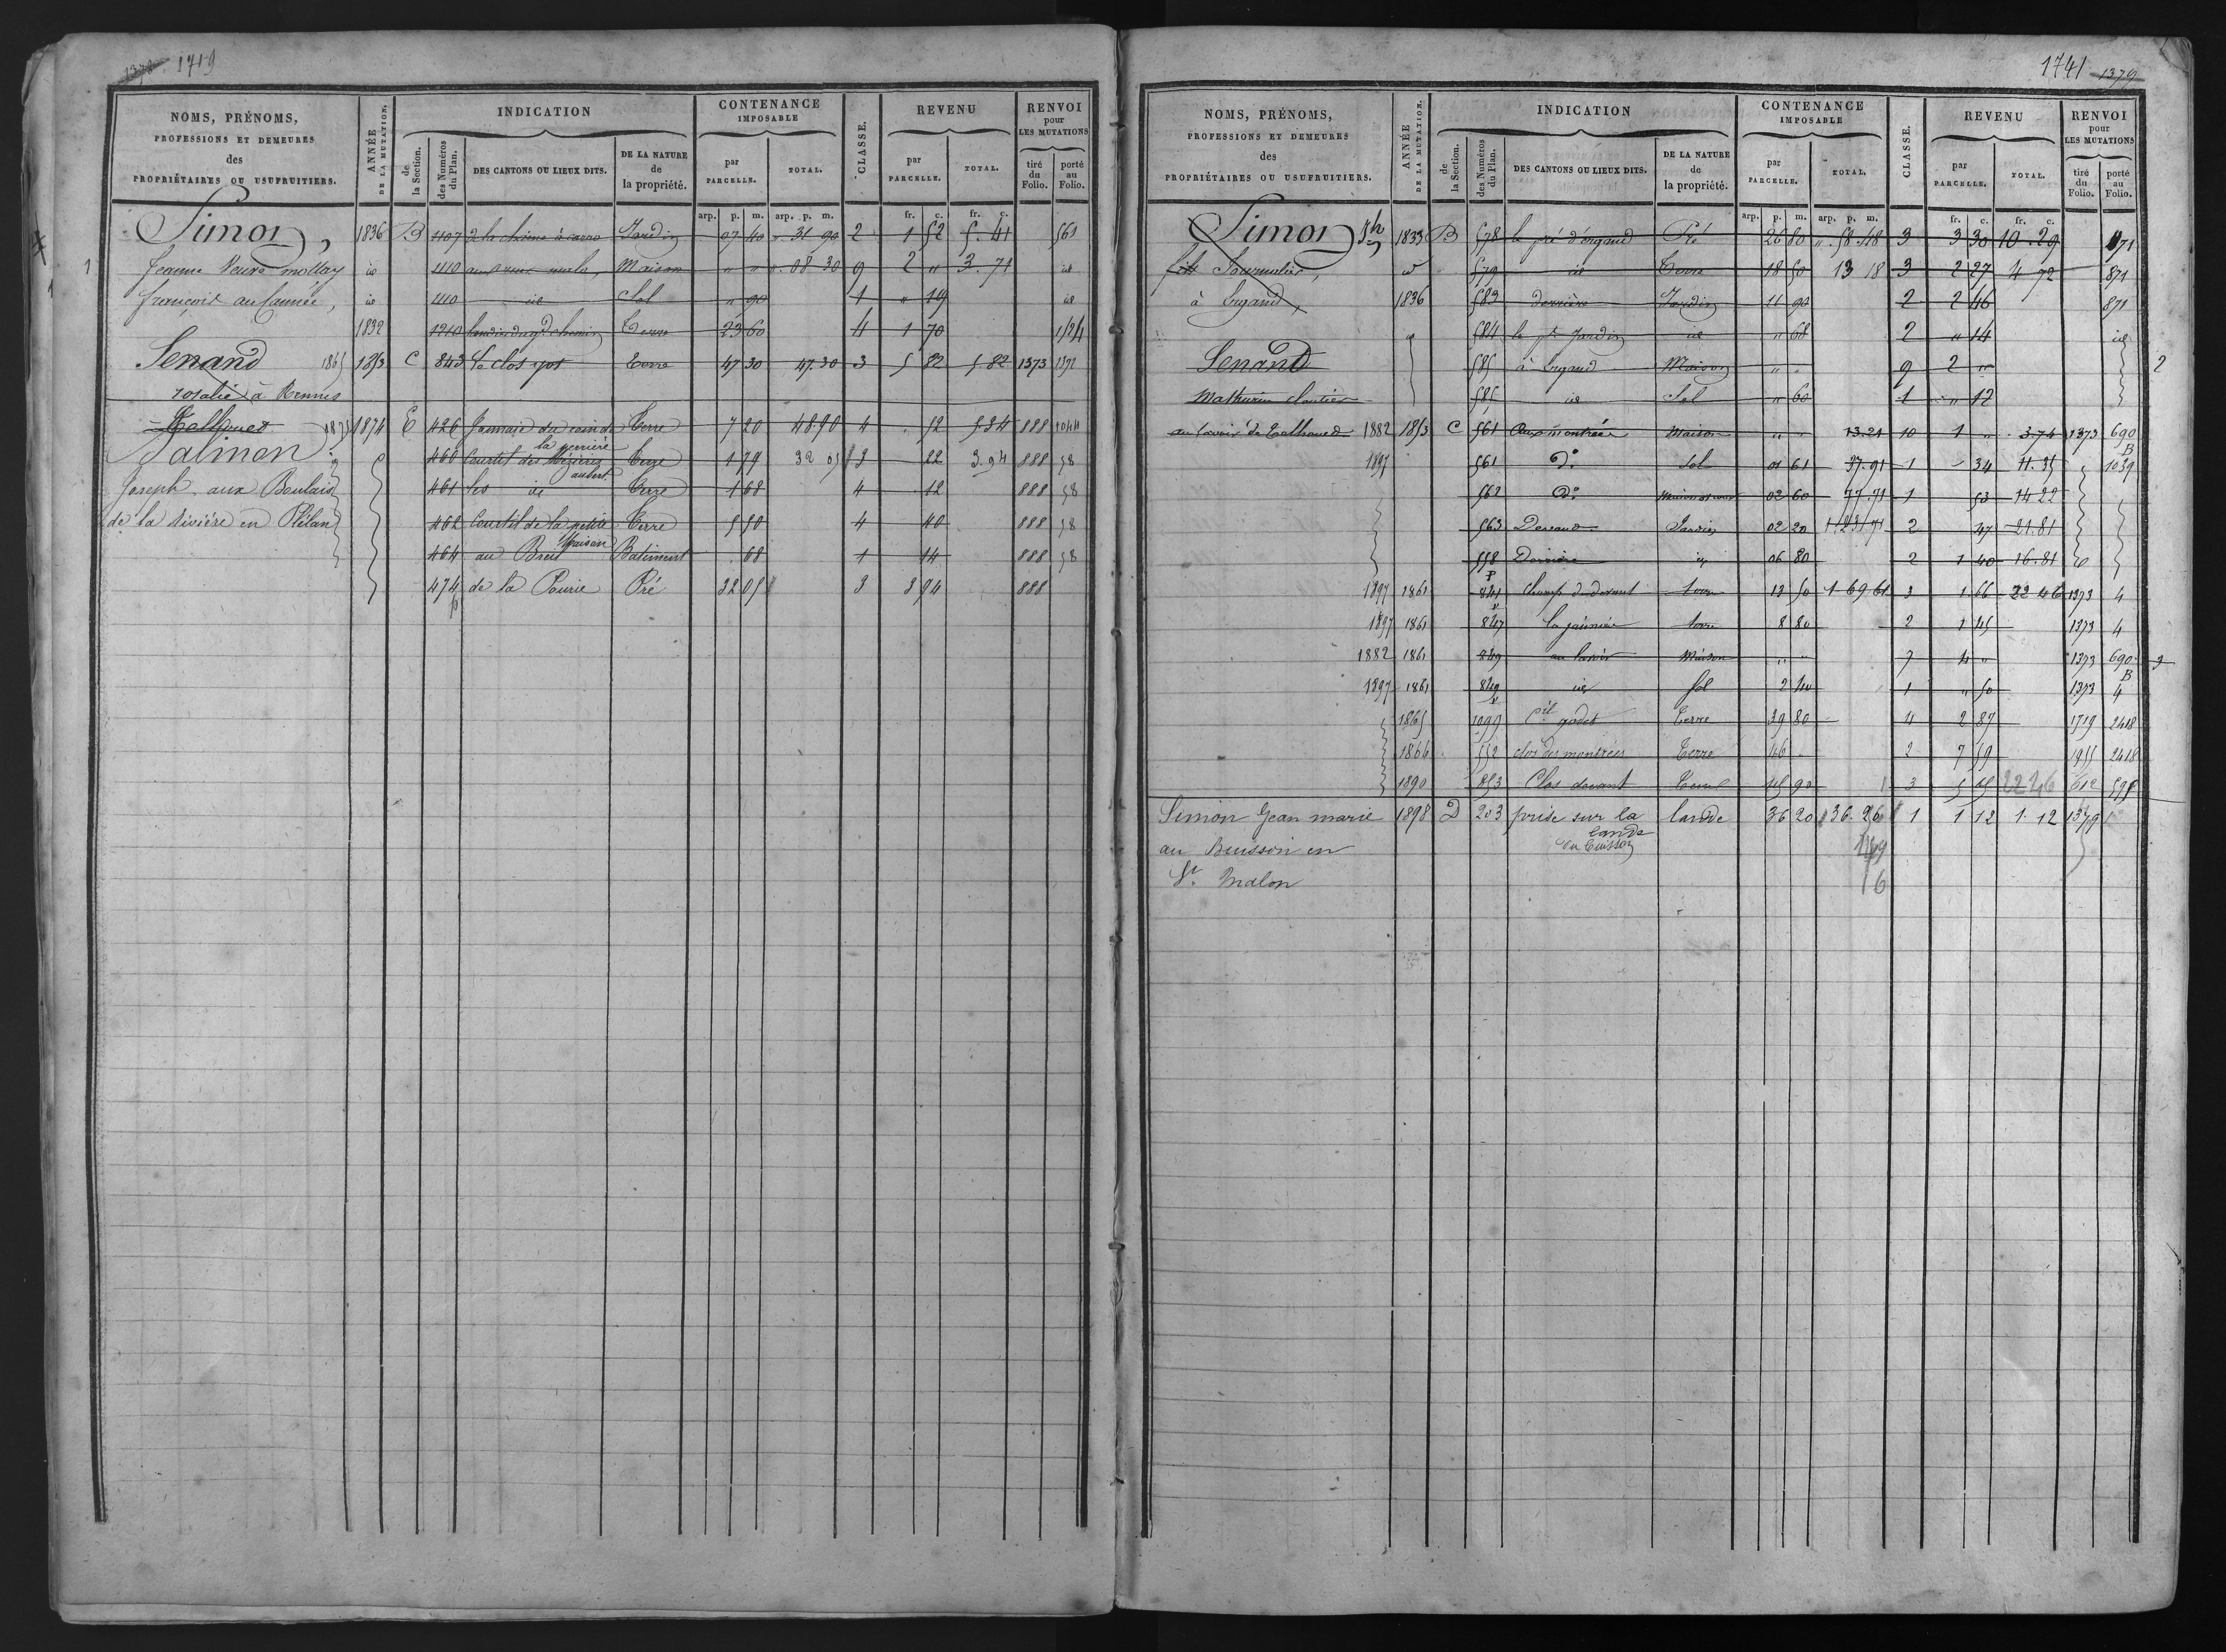 1378 1719
NOMS, PRÉNOMS, PROFESSIONS ET DEMEURES des PROPRIÉTAIRES OU USUFRUITIERS.
ANNÉE DE LA MUTATION.
INDICATION
de la Section.
des Numéros du Plan.
DES CANTONS OU LIEUX DITS.
DE LA NATURE de la propriété.
CONTENANCE IMPOSABLE
par PARCELLE.
TOTAL.
CLASSE.
REVENU
par PARCELLE.
TOTAL.
RENVOI pour LES MUTATIONS
tiré du Folio.
porté au Folio.
arp. p. m. arp. p. m. fr. c. fr. c.
Simon, 1836 B 1107 Jardin 07 40 " 31 90 2 1 52 5. 41 561
Jeanne Veuve mollay id 1110 Maison " " ". 08 30 9 2 " 3. 71 id
françois au Cannée, id 1110 id Sol " 90 1 " 19 id
1832 1210 Terre 23 60 4 1 70 1124
Senand 1865 1853 C 843 Le clos Terre 47 30 47. 30 3 5 82 5 82 1373 1372
rosalie à Rennes
1875 1874 E 426 Terre 7 20 48.90 4 . 52 5 34 888 1044
Salmon la perrière
460 Courtil des Terre 1 79 32 05 3 22 3.94 888 58
Joseph aux Boulais 461 les id Terre 1 68 4 12 888 58
de la rivière en Plélan 462 Courtil de la petite Maison Terre 5 50 4 40 888 58
464 au Breil Batiment . 68 1 14 888 58
474 p de la Pourie Pré 32 05 3 3 94 888
1741 1379
NOMS, PRÉNOMS, PROFESSIONS ET DEMEURES des PROPRIÉTAIRES OU USUFRUITIERS.
ANNÉE DE LA MUTATION.
INDICATION
de la Section.
des Numéros du Plan.
DES CANTONS OU LIEUX DITS.
DE LA NATURE de la propriété.
CONTENANCE IMPOSABLE
par PARCELLE.
TOTAL.
CLASSE.
REVENU
par PARCELLE.
TOTAL.
RENVOI pour LES MUTATIONS
tiré du Folio.
porté au Folio.
arp. p. m. arp. p. m. fr. c. fr. c.
Simon Jh 1833 B 578 le pré d'Ergand Pré 26 80 ". 58. 48 3 3 30 10. 29 871
fils id 579 id Terre 18 50 13 18 3 2 27 4 72 871
à Ergand 1836 583 derrière Jardin 11 90 2 2 46 871
584 le pt Jardin id " 68 2 " 14 id
Senand 585 à Ergand Maison " " 9 2 "
Mathurin cloutier 585 id Sol " 60 1 " 12
au lavoir de 1882 1853 C 561 Aux montrées Maison " " 13.21 10 1 " 3.74 1373 690
1897 561 do Sol 01 61 37.91 1 34 11.35 B 1039
562 do 02 60 77.71 1 53 14 22
563 Devant Jardin 02 20 1.23.71 2 47 21.81
558 Derrière id 06 80 2 1 40 16.81 id
1897 1861 841 p Champ de devant terre 13 50 1 69 61 3 1 66 22 46 1373 4
1897 1861 847 terre 8 80 2 1 45 1373 4
1882 1861 849 au lavoir Maison " " 7 4 " 1373 690
1897 1861 849 id Sol 2 40 1 " 50 1373 B 4
1865 1099 Ctil godet Terre 39 80 4 2 87 1719 2418
1866 552 clos des montrées Terre 46 2 7 59 1955 2418
1890 853 Clos devant Terre 45 90 3 5 45 22 46 612 598
Simon Jean marie 1898 D 203 prise sur la lande du buisson lande 36 20 36. 26 1 1 12 1. 12 1379
au Buisson en
St Malon